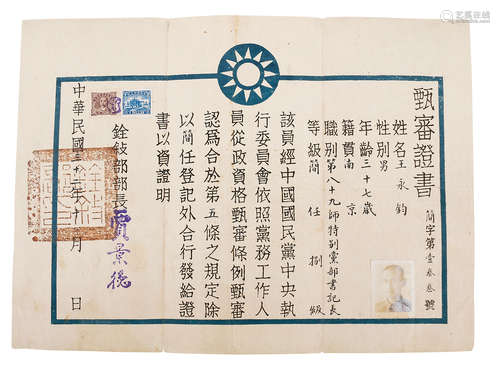 甄審證書
簡字第壹叁叁號
姓名王永鈞
性別男
年齡三十七歲
籍貫南京
職別第八十九師特別黨部書記長
等級簡任捌級
該員經中國國民黨中央執
行委員會依照黨務工作人
員從政資格甄審條例甄審
認爲合於第五條之規定除
以簡任登記外合行發給證
書以資證明
銓敍部部長賈景德
中華民國三十三年十一月 日